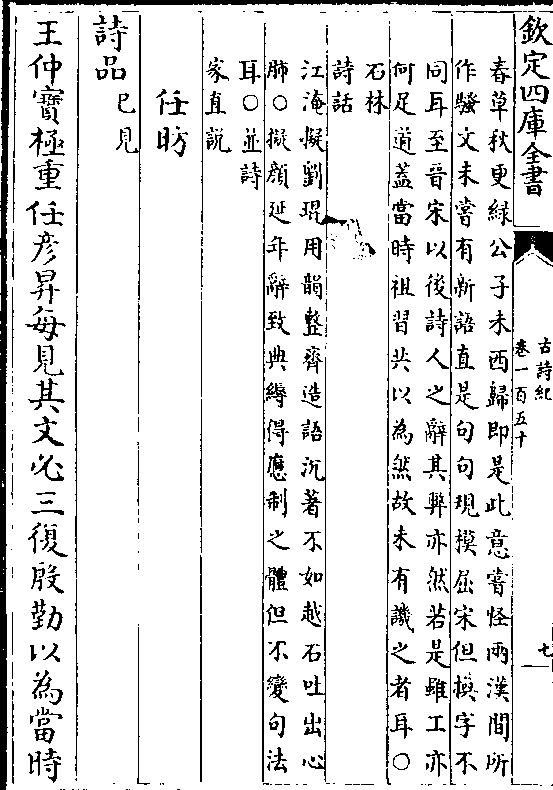 欽定四庫全書
古詩紀
卷一百五十
七
春草秋更綠公子未西歸即是此意嘗怪兩漢間所
作騷文未嘗有新語直是句句規模屈宋但換字不
同耳至晉宋以後詩人之辭其弊亦然若是雖工亦
何足道蓋當時祖習共以為然故未有譏之者耳○
石林
詩話
江淹擬劉琨用韻整齊造語沉著不如越石吐出心
肺○擬顏延年辭致典縟得應制之體但不變句法
耳○並詩
家直說
任昉
詩品已見
王仲寶極重任彥昇每見其文必三復殷勤以為當時